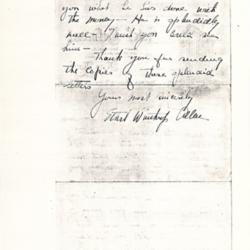 you what he has done with
the money — He is splendidly
— I wish you could see
him —
Thank you for sending
the copies of those splendid
letters
Yours most sincerely